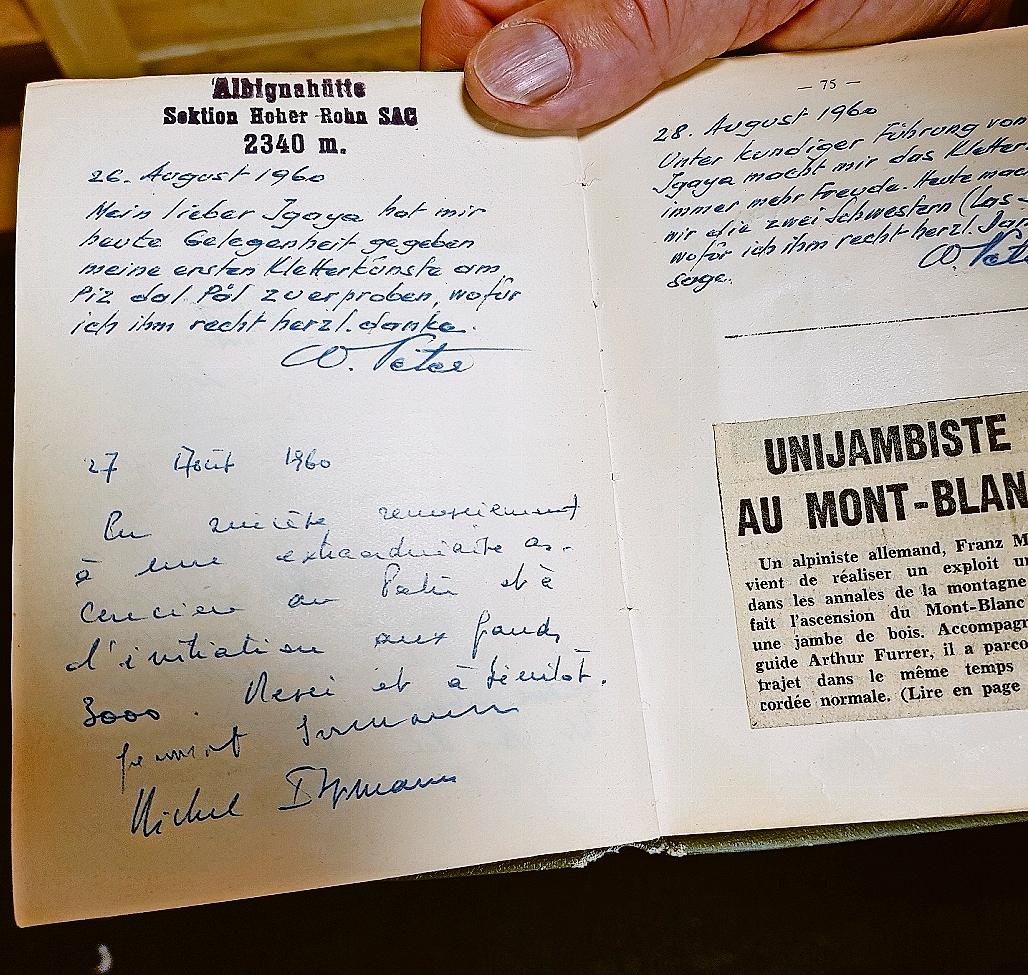 Albignahütte
Sektion Hoher Rohn SAC
2340 m.
26. August 1960
Mein lieber Igaya hat mir
heute Gelegenheit gegeben
meine ersten Kletterkünste am
Piz dal Päl zu erproben, wofür
ich ihm recht herzl. danke.
W. Peter
27 Août 1960
En sincère remerciement
à une extraordinaire as-
cencion au et à
l'initiation aux grands
3000. Merci et à bientôt.
Michel
— 75 —
28. August 1960
Unter kundiger Führung von
Igaya macht mir das Kletter-
immer mehr Freude. Heute mach
mir die zwei Schwestern (Las-
wofür ich ihm recht herzl. Dan
sage.
W. Pete
UNIJAMBISTE
AU MONT-BLAN
Un alpiniste allemand, Franz M
vient de réaliser un exploit un
dans les annales de la montagne
fait l'ascension du Mont-Blanc
une jambe de bois. Accompagn
guide Arthur Furrer, il a parco
trajet dans le même temps
cordée normale. (Lire en page